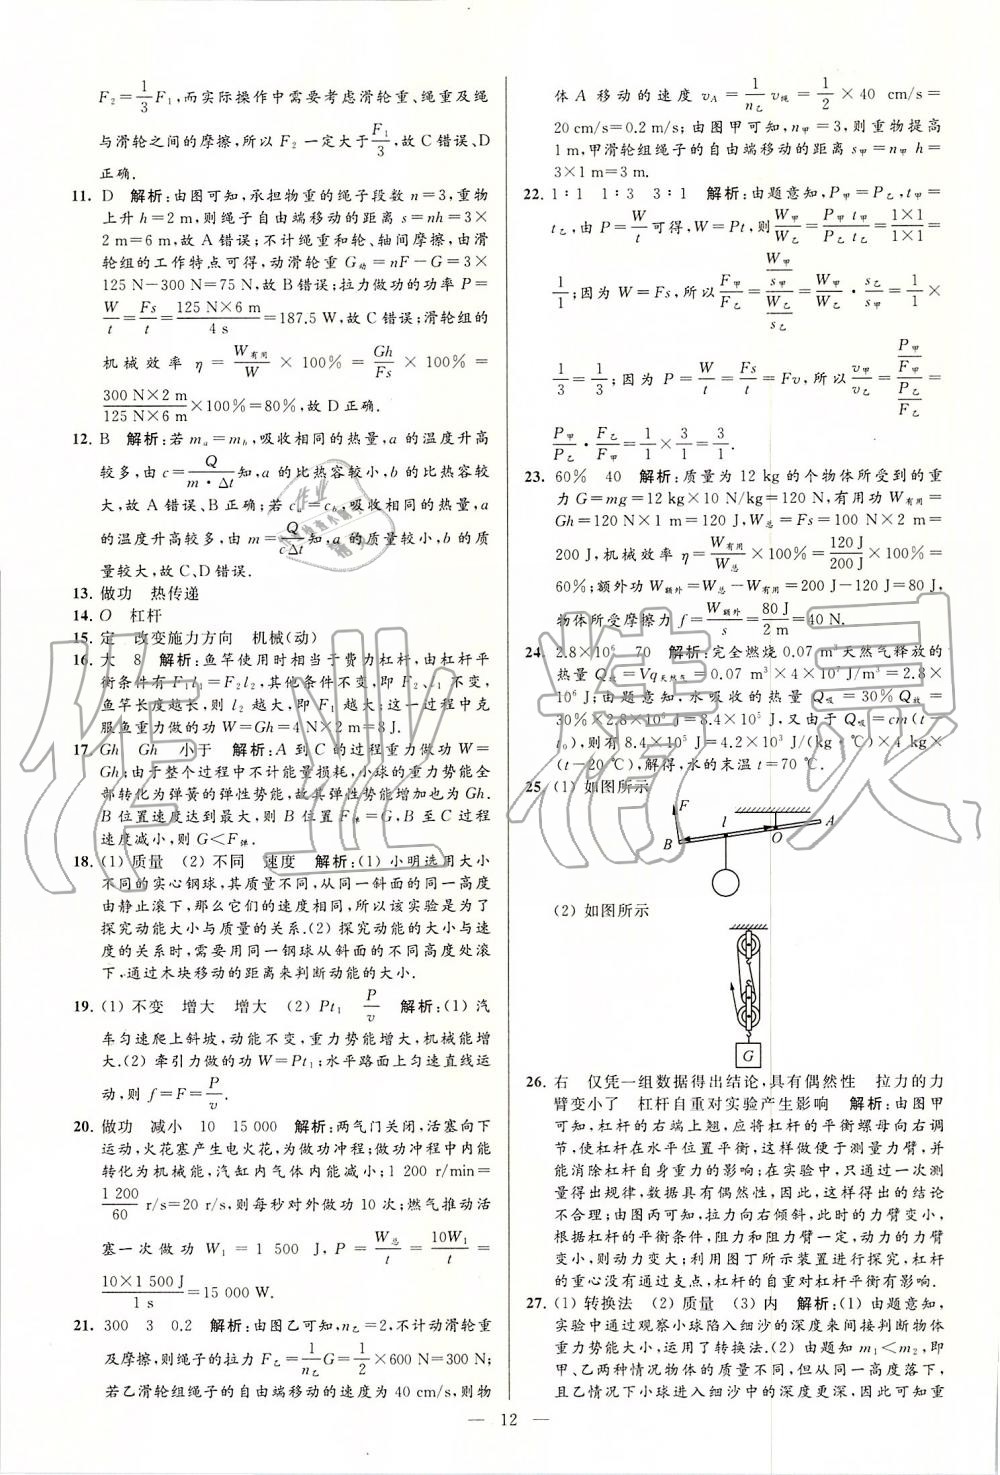 F₂=1/3F₁,而实际操作中需要考虑滑轮重、绳重及绳
与滑轮之间的摩擦,所以 F₂ 一定大于F₁/3,故 C 错误、D
正确.
11. D 解析:由图可知,承担物重的绳子段数 n=3,重物
上升 h=2 m,则绳子自由端移动的距离 s=nh=3×
2 m=6 m,故 A 错误;不计绳重和轮、轴间摩擦,由滑
轮组的工作特点可得,动滑轮重 G动=nF-G=3×
125 N-300 N=75 N,故 B 错误;拉力做功的功率 P=
W/t=Fs/t=125 N×6 m/4 s=187.5 W,故 C 错误;滑轮组的
机械效率 η=W有用/W×100%=Gh/Fs×100%=
300 N×2 m/125 N×6 m×100%=80%,故 D 正确.
12. B 解析:若 mₐ=m_b,吸收相同的热量,a 的温度升高
较多,由 c=Q/m·Δt知,a 的比热容较小,b 的比热容较
大,故 A 错误、B 正确;若 cₐ=c_b,吸收相同的热量,a
的温度升高较多,由 m=Q/cΔt知,a 的质量较小,b 的质
量较大,故 C、D 错误.
13. 做功 热传递
14. O 杠杆
15. 定 改变施力方向 机械(动)
16. 大 8 解析:鱼竿使用时相当于费力杠杆,由杠杆平
衡条件有 F₁l₁=F₂l₂,其他条件不变,即 F₂、l₁ 不变,
鱼竿长度越长,则 l₂ 越大,即 F₁ 越大;这一过程中克
服鱼重力做的功 W=Gh=4 N×2 m=8 J.
17. Gh Gh 小于 解析:A 到 C 的过程重力做功 W=
Gh;由于整个过程中不计能量损耗,小球的重力势能全
部转化为弹簧的弹性势能,故其弹性势能增加也为 Gh.
B 位置速度达到最大,则 B 位置 F弹=G,B 至 C 过程
速度减小,则 G<F弹.
18. (1) 质量 (2) 不同 速度 解析:(1) 小明选用大小
不同的实心钢球,其质量不同,从同一斜面的同一高度
由静止滚下,那么它们的速度相同,所以该实验是为了
探究动能大小与质量的关系.(2) 探究动能的大小与速
度的关系时,需要用同一钢球从斜面的不同高度处滚
下,通过木块移动的距离来判断动能的大小.
19. (1) 不变 增大 增大 (2) Pt₁ P/v 解析:(1) 汽
车匀速爬上斜坡,动能不变,重力势能增大,机械能增
大.(2) 牵引力做的功 W=Pt₁;水平路面上匀速直线运
动,则 f=F=P/v.
20. 做功 减小 10 15 000 解析:两气门关闭,活塞向下
运动,火花塞产生电火花,为做功冲程;做功冲程中内能
转化为机械能,汽缸内气体内能减小;1 200 r/min=
1 200/60 r/s=20 r/s,则每秒对外做功 10 次;燃气推动活
塞一次做功 W₁=1 500 J,P=W总/t=10W₁/t=
10×1 500 J/1 s=15 000 W.
21. 300 3 0.2 解析:由图乙可知,n乙=2,不计动滑轮重
及摩擦,则绳子的拉力 F乙=1/n乙G=1/2×600 N=300 N;
若乙滑轮组绳子的自由端移动的速度为 40 cm/s,则物
体 A 移动的速度 v_A=1/n乙v绳=1/2×40 cm/s=
20 cm/s=0.2 m/s;由图甲可知,n甲=3,则重物提高
1 m,甲滑轮组绳子的自由端移动的距离 s甲=n甲h=
3×1 m=3 m.
22. 1∶1 1∶3 3∶1 解析:由题意知,P甲=P乙,t甲=
t乙,由 P=W/t可得,W=Pt,则W甲/W乙=P甲t甲/P乙t乙=1×1/1×1=
1/1;因为 W=Fs,所以F甲/F乙=(W甲/s甲)/(W乙/s乙)=W甲/W乙·s乙/s甲=1/1×
1/3=1/3;因为 P=W/t=Fs/t=Fv,所以v甲/v乙=(P甲/F甲)/(P乙/F乙)=
P甲/P乙·F乙/F甲=1/1×3/1=3/1.
23. 60% 40 解析:质量为 12 kg 的个物体所受到的重
力 G=mg=12 kg×10 N/kg=120 N,有用功 W有用=
Gh=120 N×1 m=120 J,W总=Fs=100 N×2 m=
200 J,机械效率 η=W有用/W总×100%=120 J/200 J×100%=
60%;额外功 W额外=W总-W有用=200 J-120 J=80 J,
物体所受摩擦力 f=W额外/s=80 J/2 m=40 N.
24. 2.8×10⁶ 70 解析:完全燃烧 0.07 m³天然气释放的
热量 Q放=Vq天然气=0.07 m³×4×10⁷ J/m³=2.8×
10⁶ J;由题意知,水吸收的热量 Q吸=30%Q放=
30%×2.8×10⁶ J=8.4×10⁵ J,又由于 Q吸=cm(t-
t₀),则有 8.4×10⁵ J=4.2×10³ J/(kg·℃)×4 kg×
(t-20 ℃),解得,水的末温 t=70 ℃.
25. (1) 如图所示
F
l
A
B
O
(2) 如图所示
G
26. 右 仅凭一组数据得出结论,具有偶然性 拉力的力
臂变小了 杠杆自重对实验产生影响 解析:由图甲
可知,杠杆的右端上翘,应将杠杆的平衡螺母向右调
节,使杠杆在水平位置平衡,这样做便于测量力臂,并
能消除杠杆自身重力的影响;在实验中,只通过一次测
量得出规律,数据具有偶然性,因此,这样得出的结论
不合理;由图丙可知,拉力向右倾斜,此时的力臂变小,
根据杠杆的平衡条件,阻力和阻力臂一定,动力的力臂
变小,则动力变大;利用图丁所示装置进行探究,杠杆
的重心没有通过支点,杠杆的自重对杠杆平衡有影响.
27. (1) 转换法 (2) 质量 (3) 内 解析:(1) 由题意知,
实验中通过观察小球陷入细沙的深度来间接判断物体
重力势能大小,运用了转换法.(2) 由题知 m₁<m₂,即
甲、乙两种情况物体的质量不同,但从同一高度落下,
且乙情况下小球进入细沙中的深度更深,因此可知重
— 12 —
作业精灵